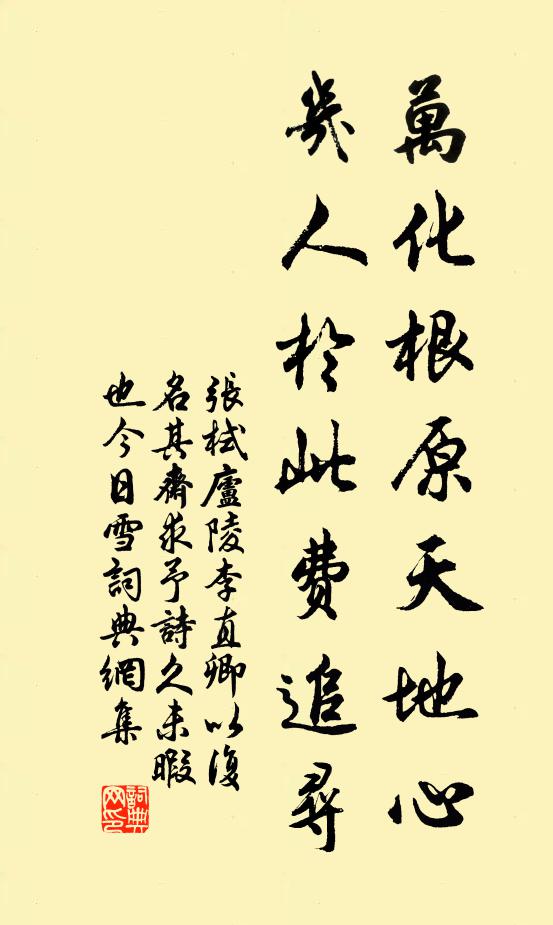 萬化根原天地心
幾人於此費追尋
張栻廬陵李直卿以復
名其齋求予詩久未暇
也今日雪詞典網集
詞典网印